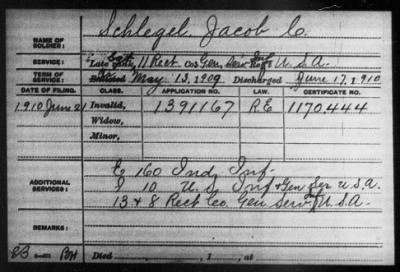 NAME OF SOLDIER: Schlegel, Jacob C.
SERVICE: Late 11 Rect Co Gen, Serv Inf U.S.A.
TERM OF SERVICE: Enlisted May 13, 1909, Discharged June 17, 1910
DATE OF FILING. CLASS. APPLICATION NO. LAW. CERTIFICATE NO.
1910 June 21 Invalid, 1391167 R.E. 1170444
Widow,
Minor,
E 160 Ind, Inf.
ADDITIONAL SERVICES: I 10 U.S. Inf & Gen Ser U.S.A.
13 & 8 Rect Co. Gen Serv U.S.A.
REMARKS:
Died , 1 , at